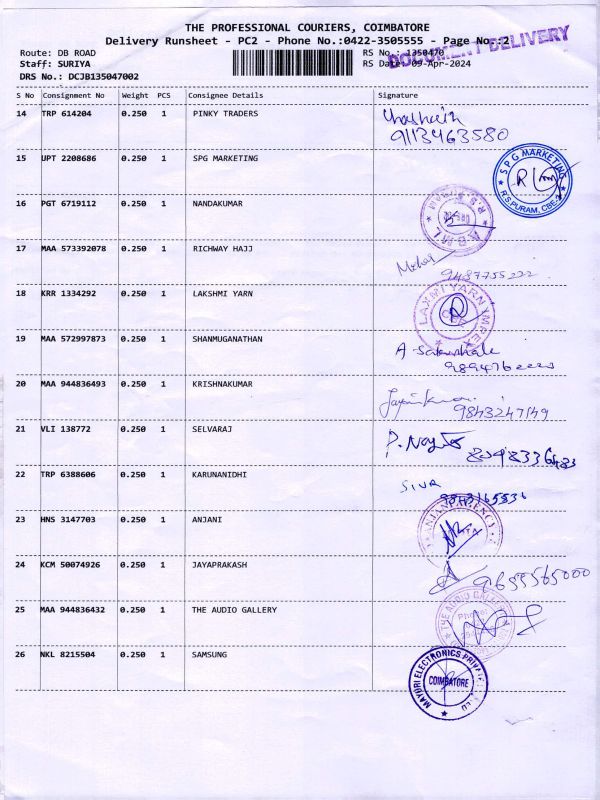 THE PROFESSIONAL COURIERS, COIMBATORE
Delivery Runsheet - PC2 - Phone No.:0422-3505555 - Page No.:2
DOCUMENT DELIVERY
Route: DB ROAD RS No.: 1350470
Staff: SURIYA RS Date: 09-Apr-2024
DRS No.: DCJB135047002
S No Consignment No Weight PCS Consignee Details Signature
14 TRP 614204 0.250 1 PINKY TRADERS
9113463580
15 UPT 2208686 0.250 1 SPG MARKETING
SPG MARKETING R.S.PURAM, CBE-2
16 PGT 6719112 0.250 1 NANDAKUMAR
17 MAA 573392078 0.250 1 RICHWAY HAJJ
9487755222
18 KRR 1334292 0.250 1 LAKSHMI YARN
LAXMI YARN IMPEX
19 MAA 572997873 0.250 1 SHANMUGANATHAN
20 MAA 944836493 0.250 1 KRISHNAKUMAR
21 VLI 138772 0.250 1 SELVARAJ
22 TRP 6388606 0.250 1 KARUNANIDHI
SIVA
23 HNS 3147703 0.250 1 ANJANI
ANJANI AGENCY
24 KCM 50074926 0.250 1 JAYAPRAKASH
9655565000
25 MAA 944836432 0.250 1 THE AUDIO GALLERY
THE AUDIO GALLERY
26 NKL 8215504 0.250 1 SAMSUNG
MAYURI ELECTRONICS PRIVATE LTD COIMBATORE